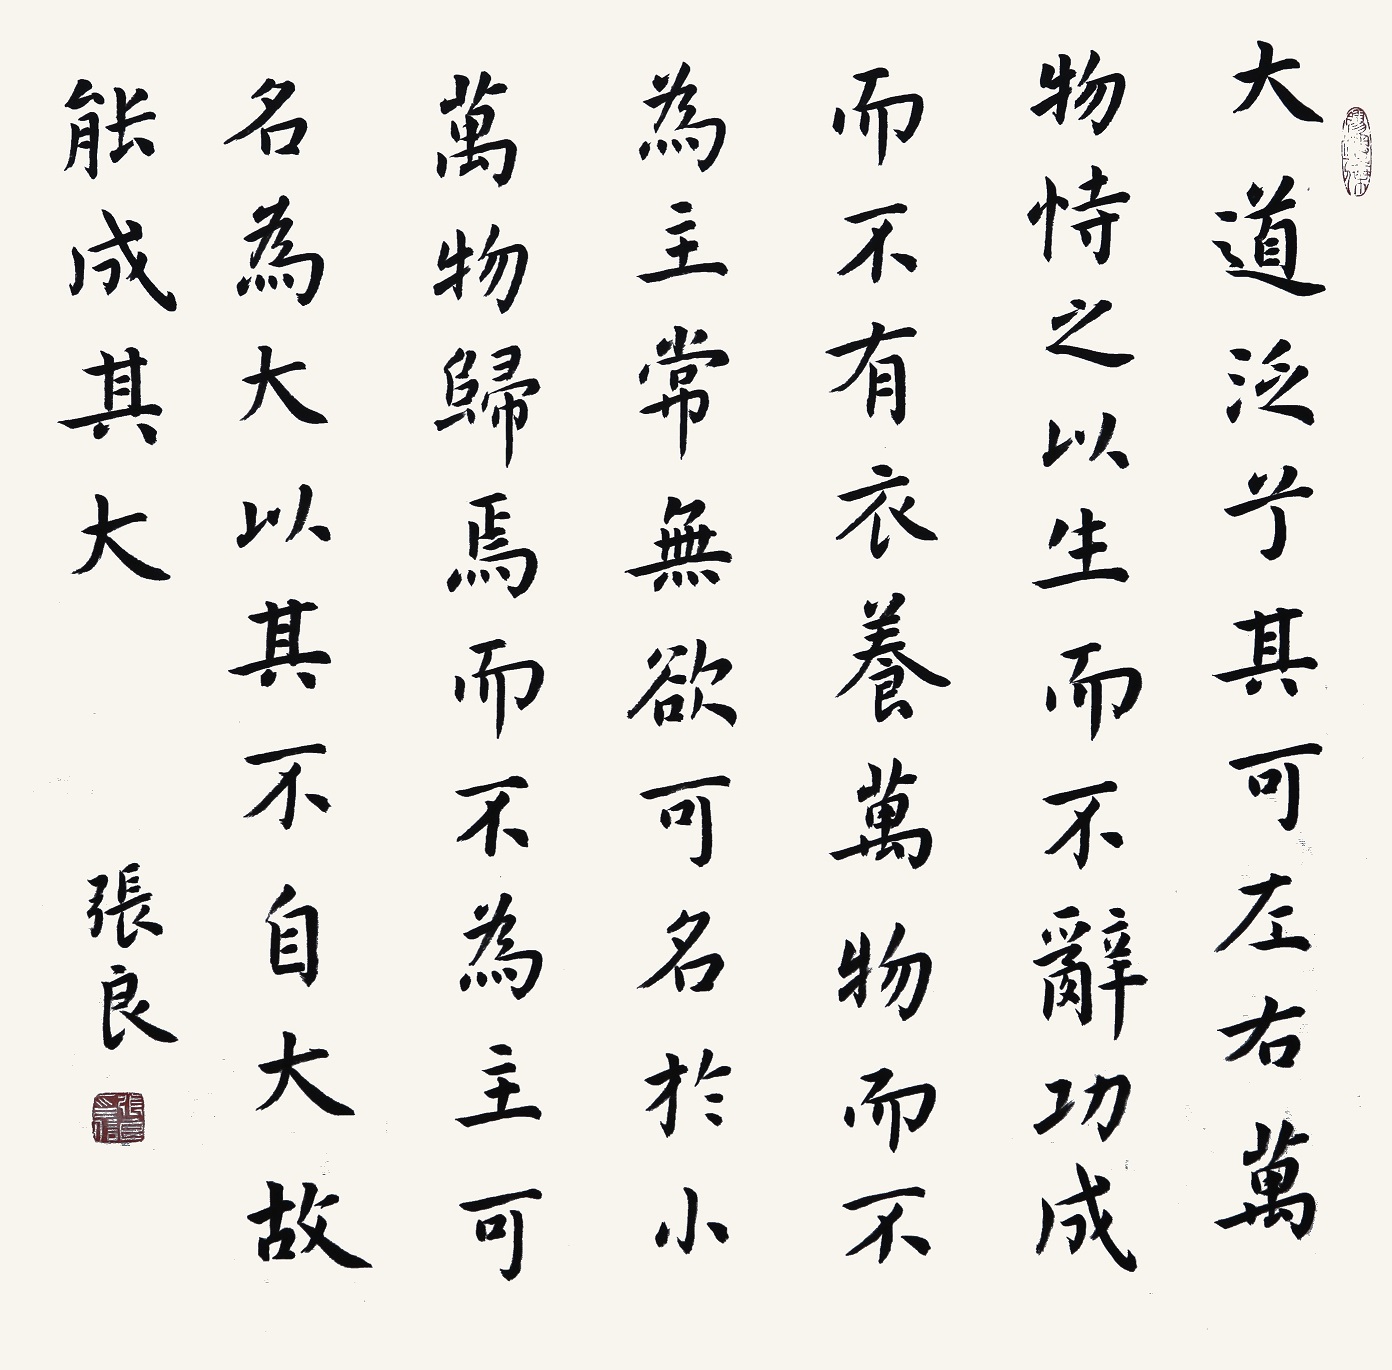 大道泛兮其可左右萬
物恃之以生而不辭功成
而不有衣養萬物而不
為主常無欲可名於小
萬物歸焉而不為主可
名為大以其不自大故
能成其大
張良